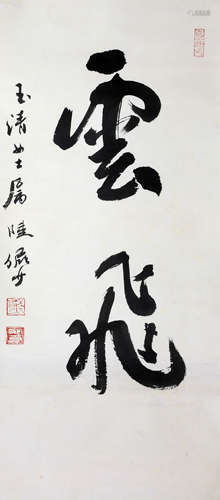 雲飛
玉清女士屬 陸儼少